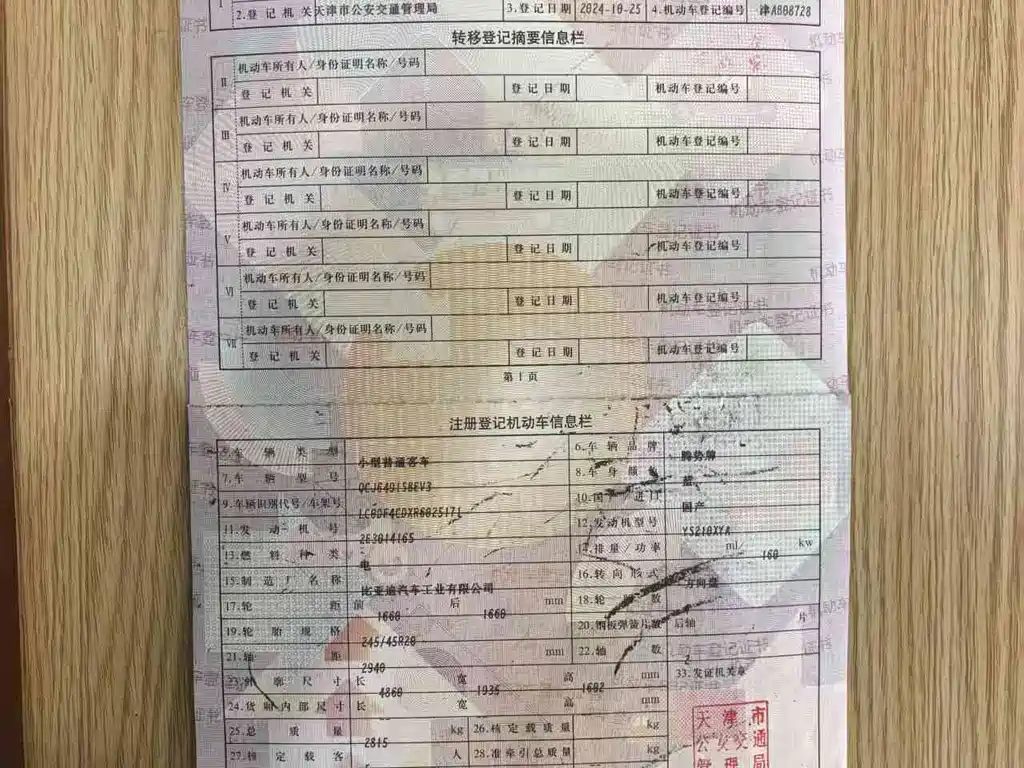 2.登记机关 天津市公安交通管理局 3.登记日期 2024-10-25 4.机动车登记编号
转移登记摘要信息栏
II 机动车所有人/身份证明名称/号码
登记机关 登记日期 机动车登记编号
III 机动车所有人/身份证明名称/号码
登记机关 登记日期 机动车登记编号
IV 机动车所有人/身份证明名称/号码
登记机关 登记日期 机动车登记编号
V 机动车所有人/身份证明名称/号码
登记机关 登记日期 机动车登记编号
VI 机动车所有人/身份证明名称/号码
登记机关 登记日期 机动车登记编号
VII 机动车所有人/身份证明名称/号码
登记机关 登记日期 机动车登记编号
第1页
注册登记机动车信息栏
5.车辆类型 小型普通客车 6.车辆品牌 腾势牌
7.车辆型号 8.车身颜色 蓝
9.车辆识别代号/车架号 10.国产/进口 国产
11.发动机号 2E3014165 12.发动机型号
13.燃料种类 电 14.排量/功率 ml/ 160 kw
15.制造厂名称 比亚迪汽车工业有限公司 16.转向形式 方向盘
17.轮距 前 1660 后 1660 mm 18.轮胎数
19.轮胎规格 245/45R20 20.钢板弹簧片数 后轴 片
21.轴距 2940 mm 22.轴数 2
23.外廓尺寸 长 4860 宽 1935 高 1602 mm 33.发证机关章
24.货厢内部尺寸 长 宽 高 mm
25.总质量 2815 kg 26.核定载质量 kg
27.核定载客 人 28.准牵引总质量 kg
天津市
公安交通
管理局